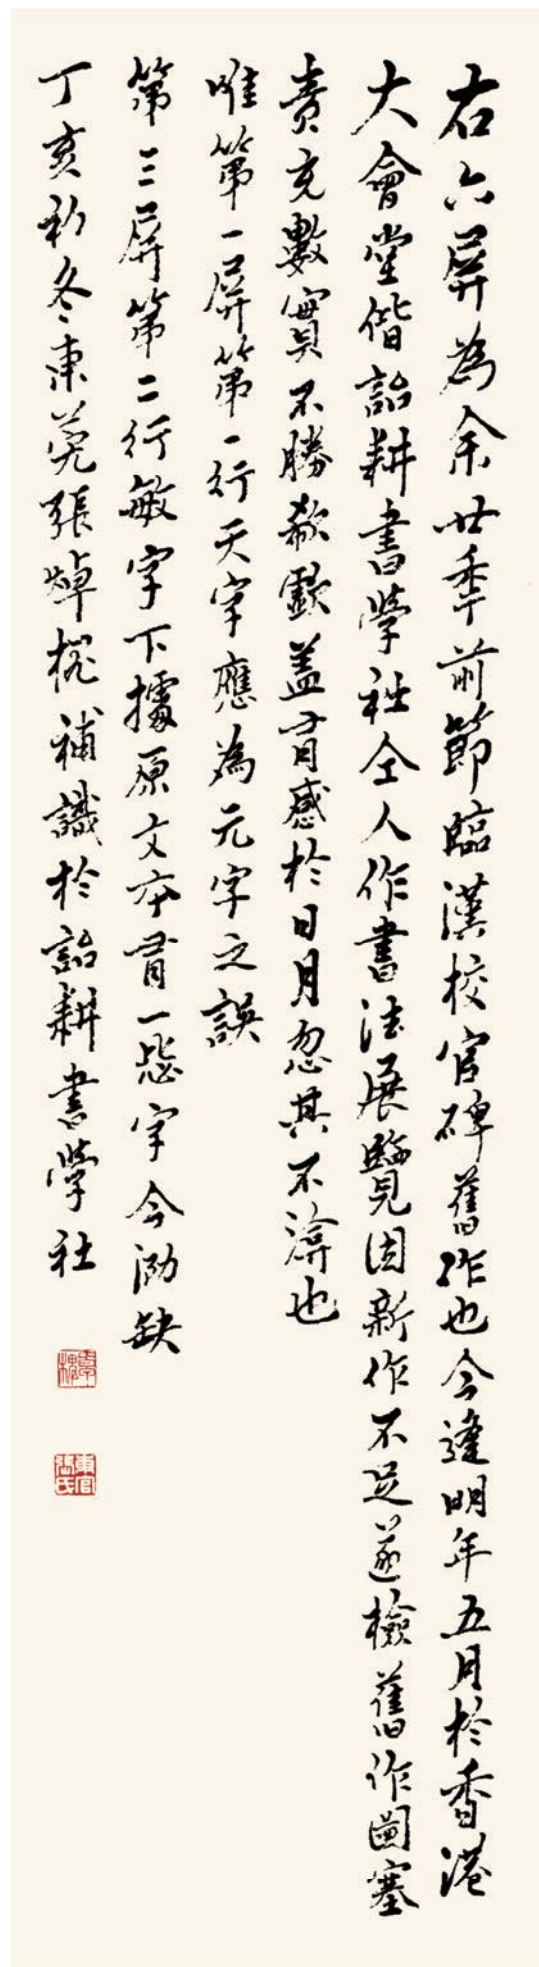 右六屏為余廿季前節臨漢校官碑舊作也今逢明年五月於香港
大會堂偕詒耕書學社仝人作書法展覽因新作不足遂檢舊作圖塞
責充數實不勝欷歔盖有感於日月忽其不淹也
唯第一屏第一行天字應為元字之誤
第三屏第二行敏字下據原文夲有一字今泐缺
丁亥初冬東莞張焯槐補識於詒耕書學社
東官張氏